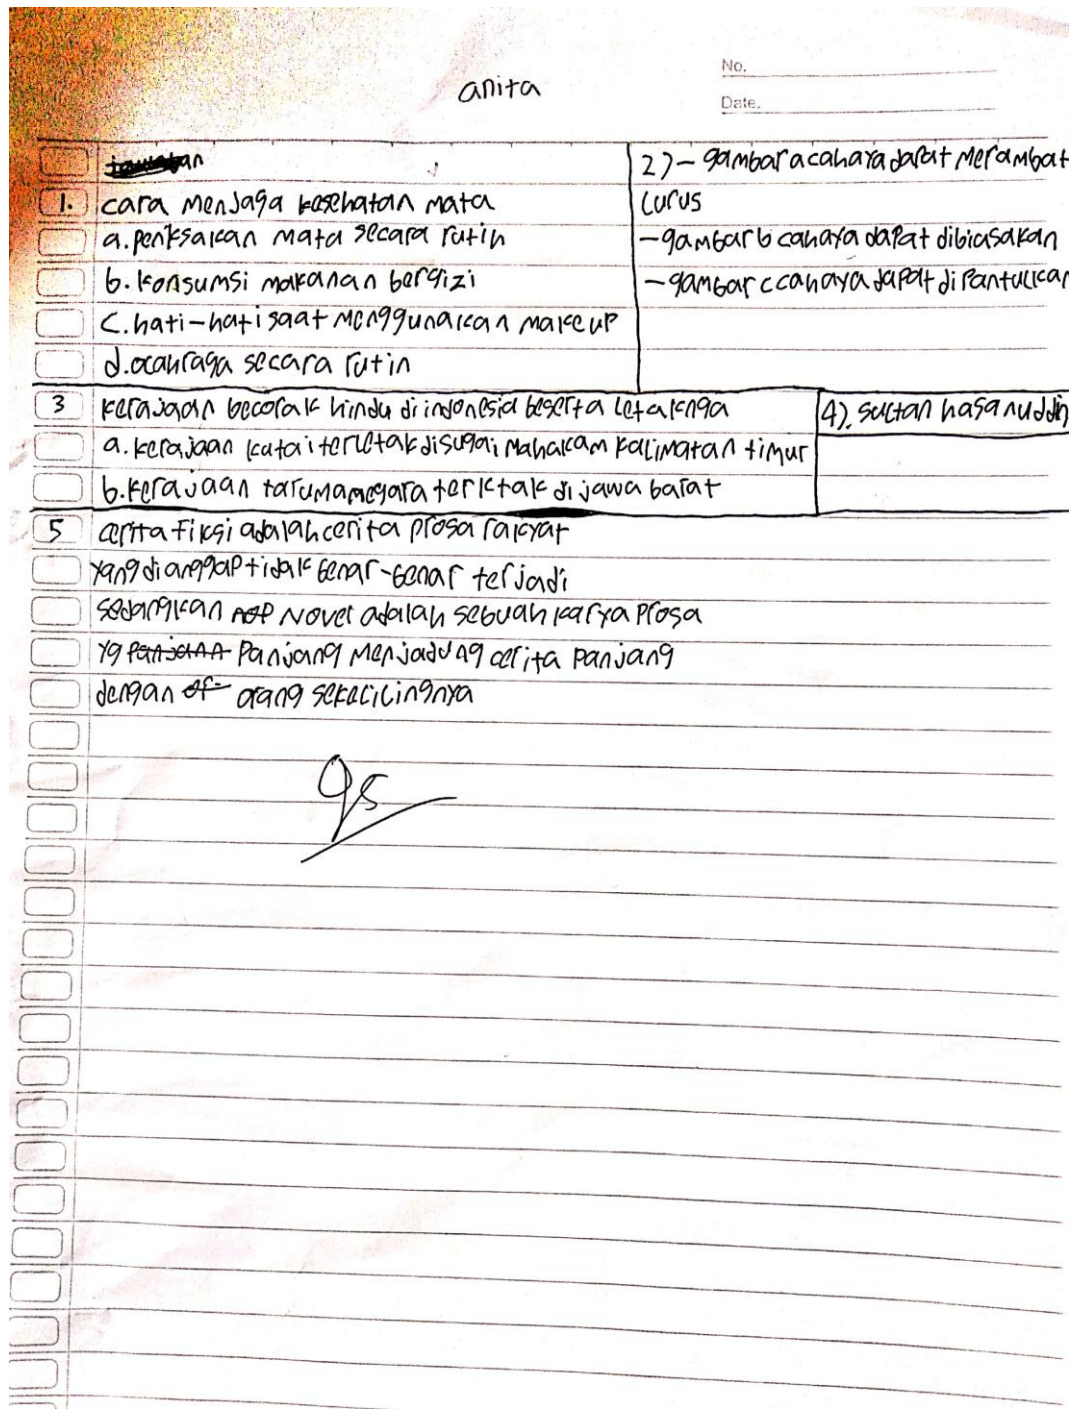 anita
No.
Date.
1. cara menjaga kesehatan mata
a. periksakan mata secara rutin
b. konsumsi makanan bergizi
c. hati-hati saat menggunakan makeup
d. olahraga secara rutin
2) - gambar a cahaya dapat merambat
lurus
- gambar b cahaya dapat dibiasakan
- gambar c cahaya dapat dipantulkan
3 kerajaan becorak hindu di indonesia beserta letaknya
a. kerajaan kutai terletak disugai mahakam kalimatan timur
b. kerajaan tarumanegara terletak di jawa barat
4). sultan hasanuddin
5 cerita fiksi adalah cerita prosa rakyat
yang dianggap tidak benar-benar terjadi
sedangkan novel adalah sebuah karya prosa
yg panjang cerita panjang
dengan orang sekelilingnya
95